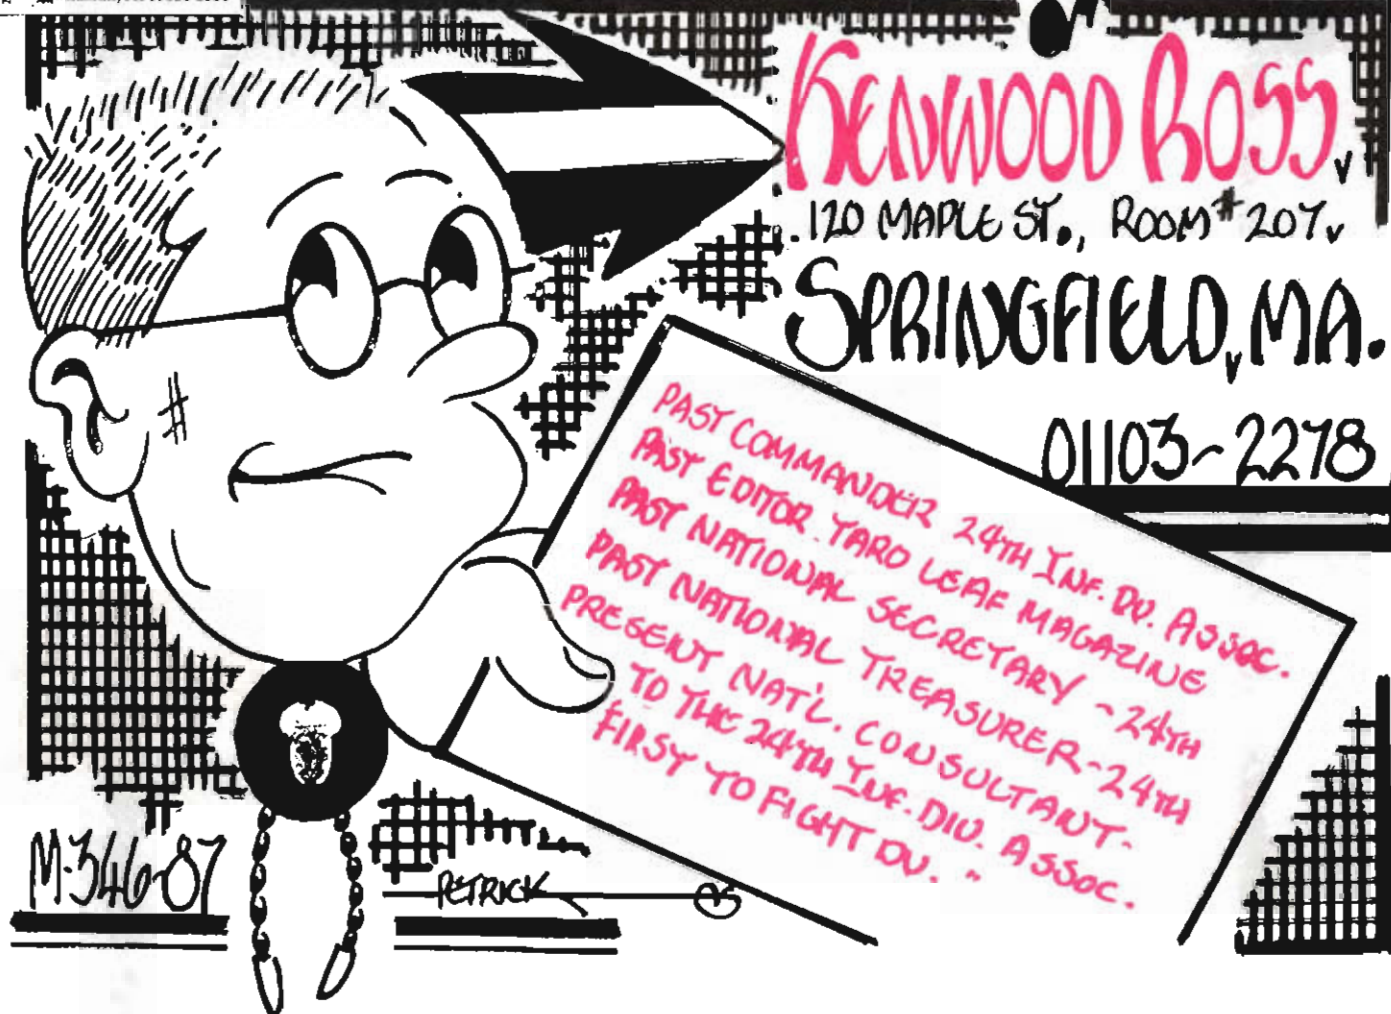 KENWOOD ROSS
120 MAPLE ST., ROOM # 207
SPRINGFIELD, MA.
01103-2278
PAST COMMANDER 24TH INF. DV. ASSOC.
PAST EDITOR TARO LEAF MAGAZINE
PAST NATIONAL SECRETARY - 24TH
PAST NATIONAL TREASURER - 24TH
PRESENT NAT'L. CONSULTANT -
TO THE 24TH INF. DIV. ASSOC.
FIRST TO FIGHT DV. "
M-346-87
PETRICK